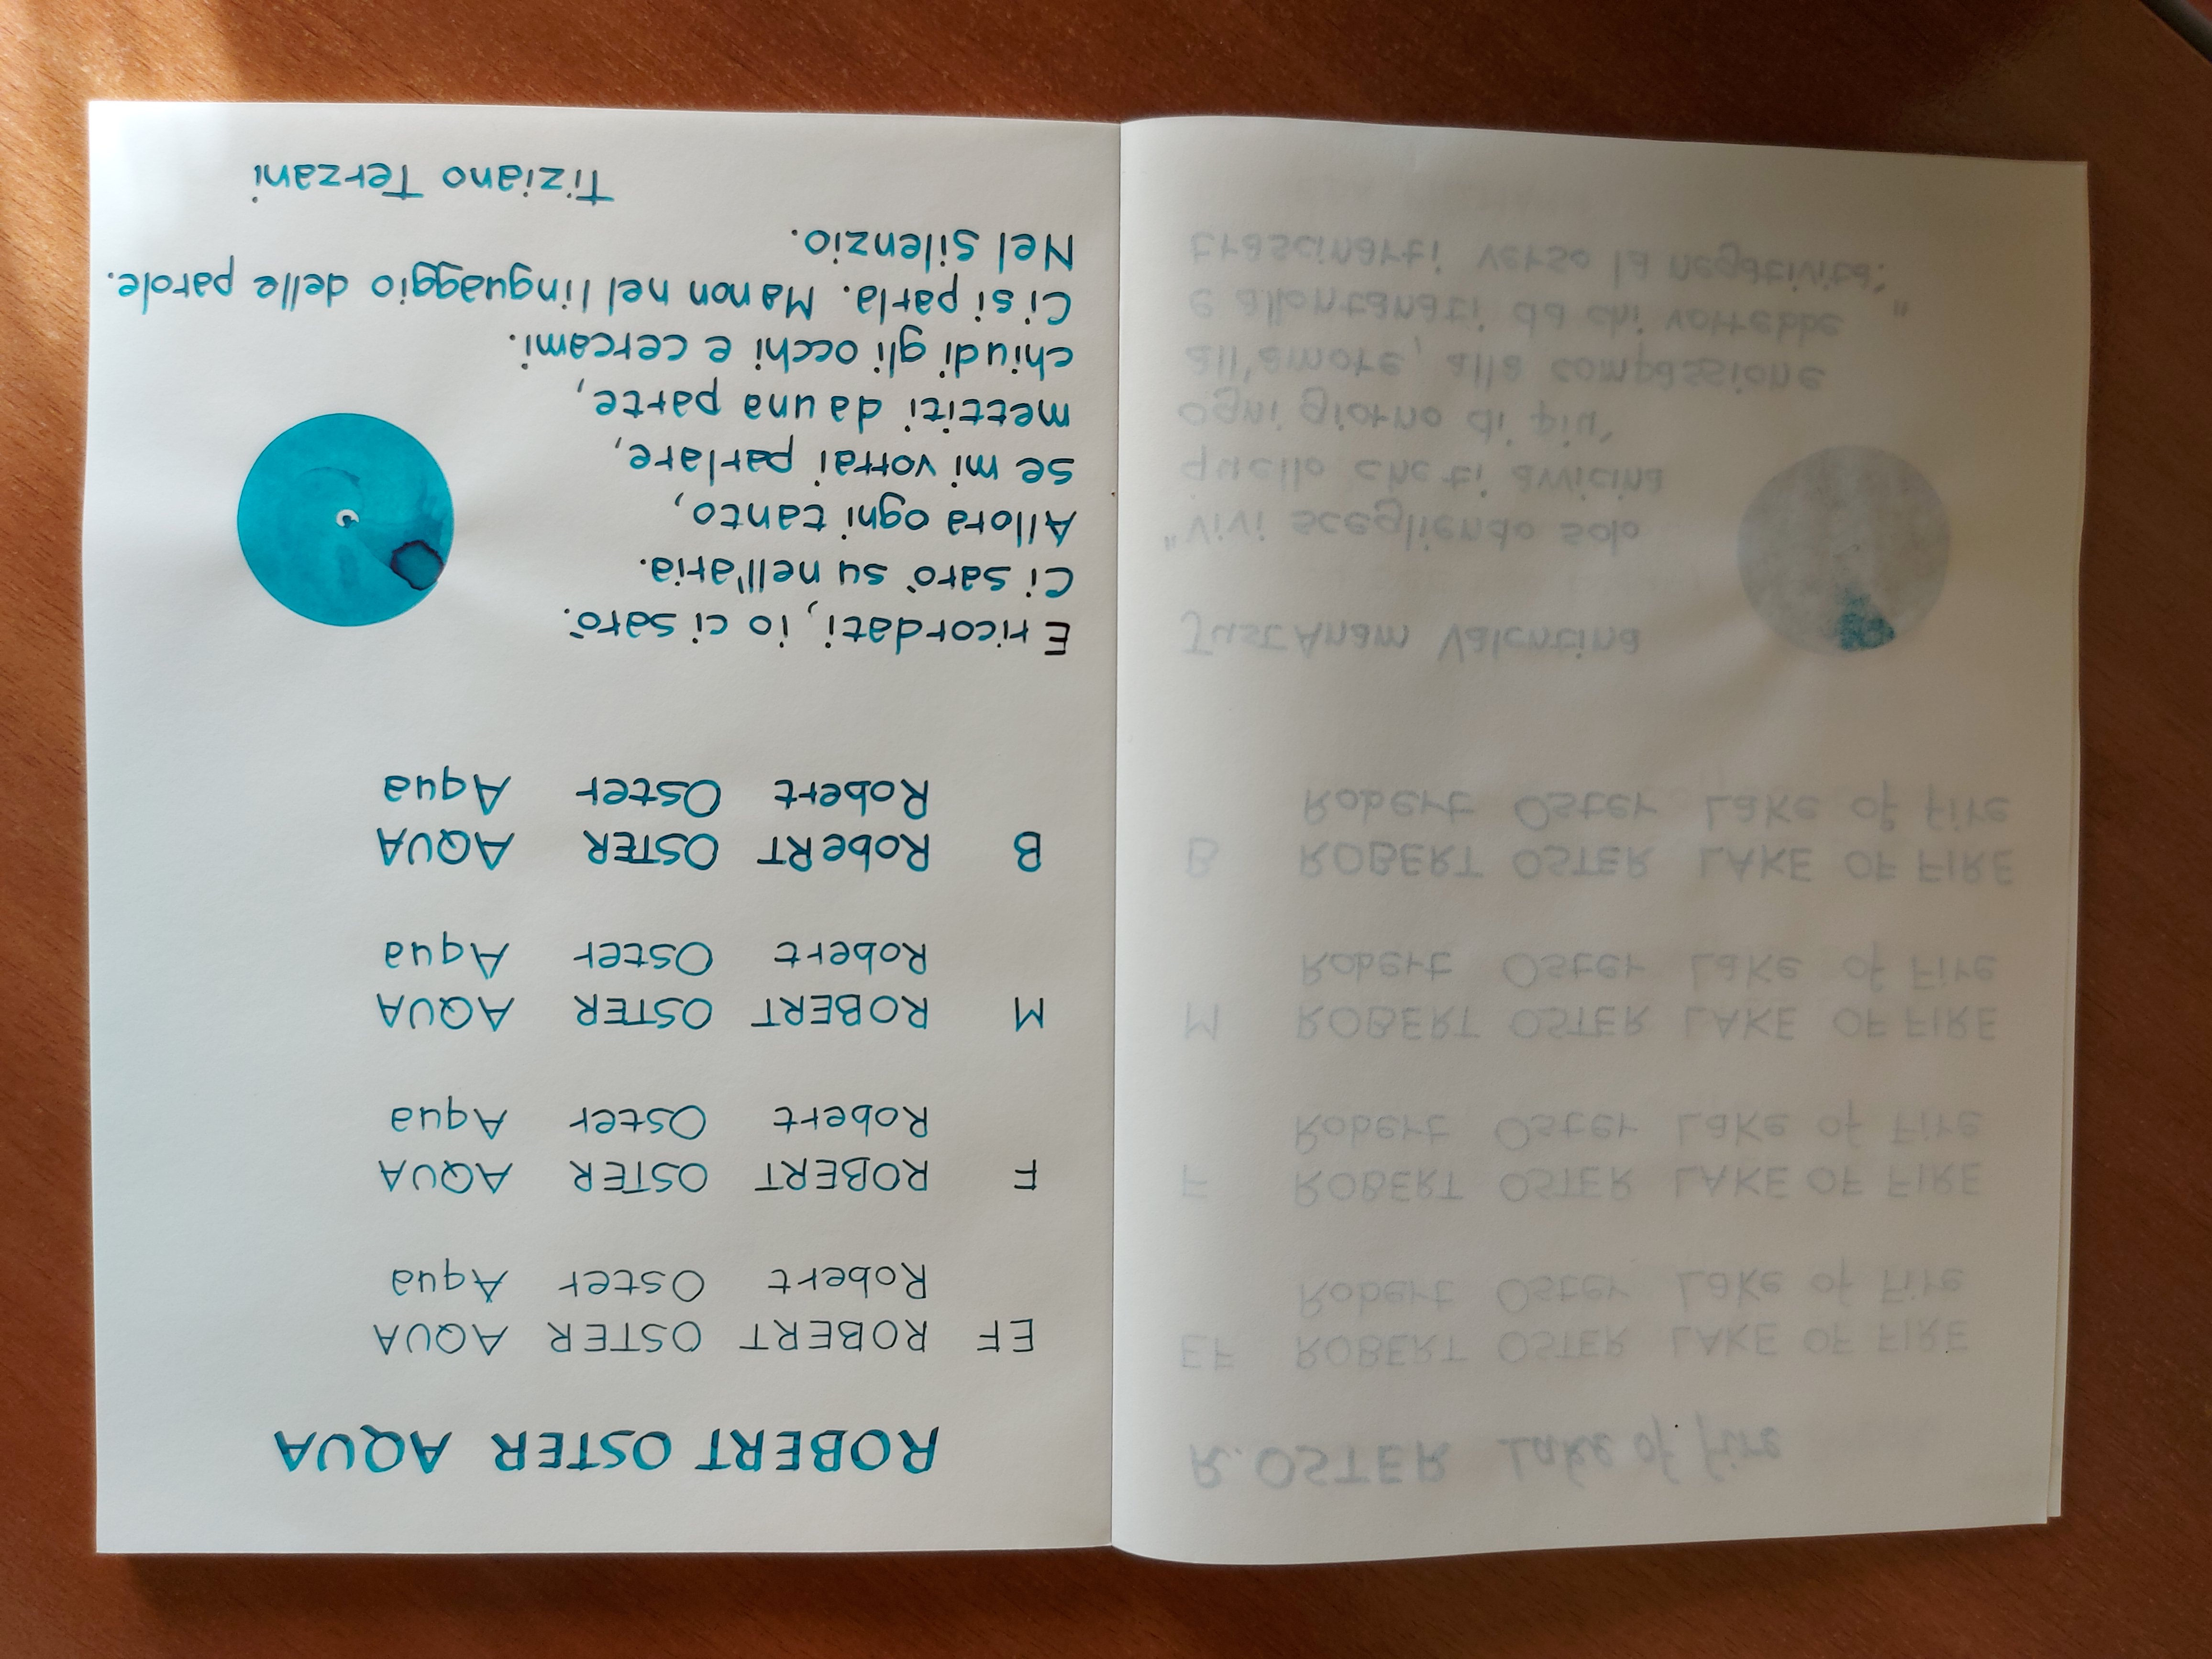 ROBERT OSTER AQUA
EF ROBERT OSTER AQUA
Robert Oster Aqua
F ROBERT OSTER AQUA
Robert Oster Aqua
M ROBERT OSTER AQUA
Robert Oster Aqua
B RobeRT OSTER AQUA
Robert Oster Aqua
E ricordati, io ci sarò.
Ci sarò su nell'aria.
Allora ogni tanto,
se mi vorrai parlare,
mettiti da una parte,
chiudi gli occhi e cercami.
Ci si parla. Ma non nel linguaggio delle parole.
Nel silenzio.
Tiziano Terzani
R. OSTER Lake of fire
EF ROBERT OSTER LAKE OF FIRE
Robert Oster Lake of Fire
F ROBERT OSTER LAKE OF FIRE
Robert Oster Lake of Fire
M ROBERT OSTER LAKE OF FIRE
Robert Oster Lake of Fire
B ROBERT OSTER LAKE OF FIRE
Robert Oster Lake of fire
Just Anam Valentina
"Vivi scegliendo solo
quello che ti avvicina
ogni giorno di più
all'amore, alla compassione
e allontanati da chi vorrebbe
trascinarti verso la negatività."